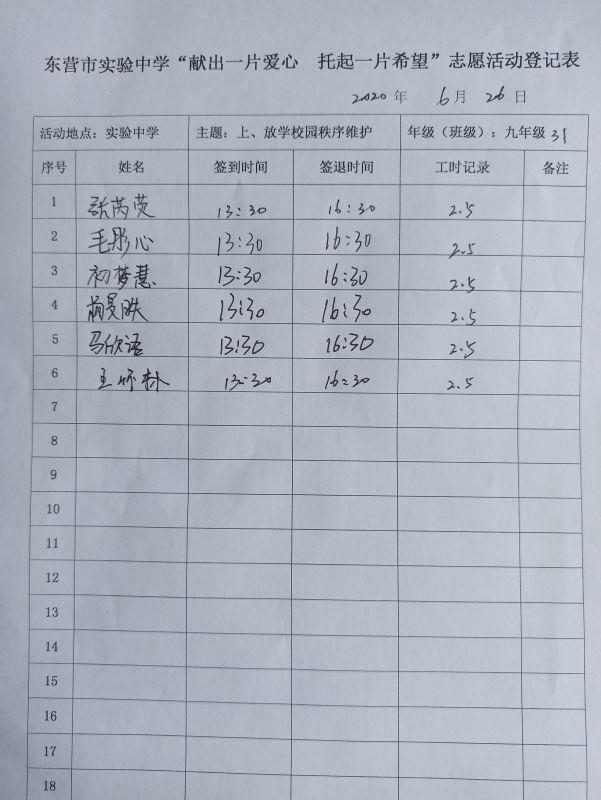 东营市实验中学“献出一片爱心 托起一片希望”志愿活动登记表
2020 年 6 月 26 日
活动地点：实验中学 主题：上、放学校园秩序维护 年级（班级）：九年级 31
序号 姓名 签到时间 签退时间 工时记录 备注
1 张芮荧 13:30 16:30 2.5
2 毛彤心 13:30 16:30 2.5
3 初梦慧 13:30 16:30 2.5
4 13:30 16:30 2.5
5 马欣语 13:30 16:30 2.5
6 王怀林 13:30 16:30 2.5
7
8
9
10
11
12
13
14
15
16
17
18